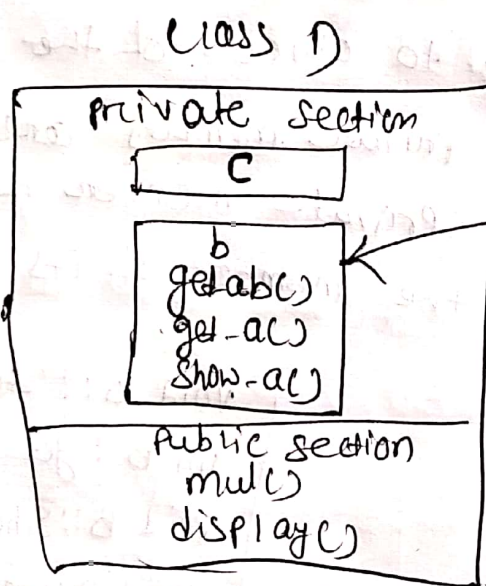 Class D
private section
C
b
getab()
get-a()
show-a()
public section
mul()
display()